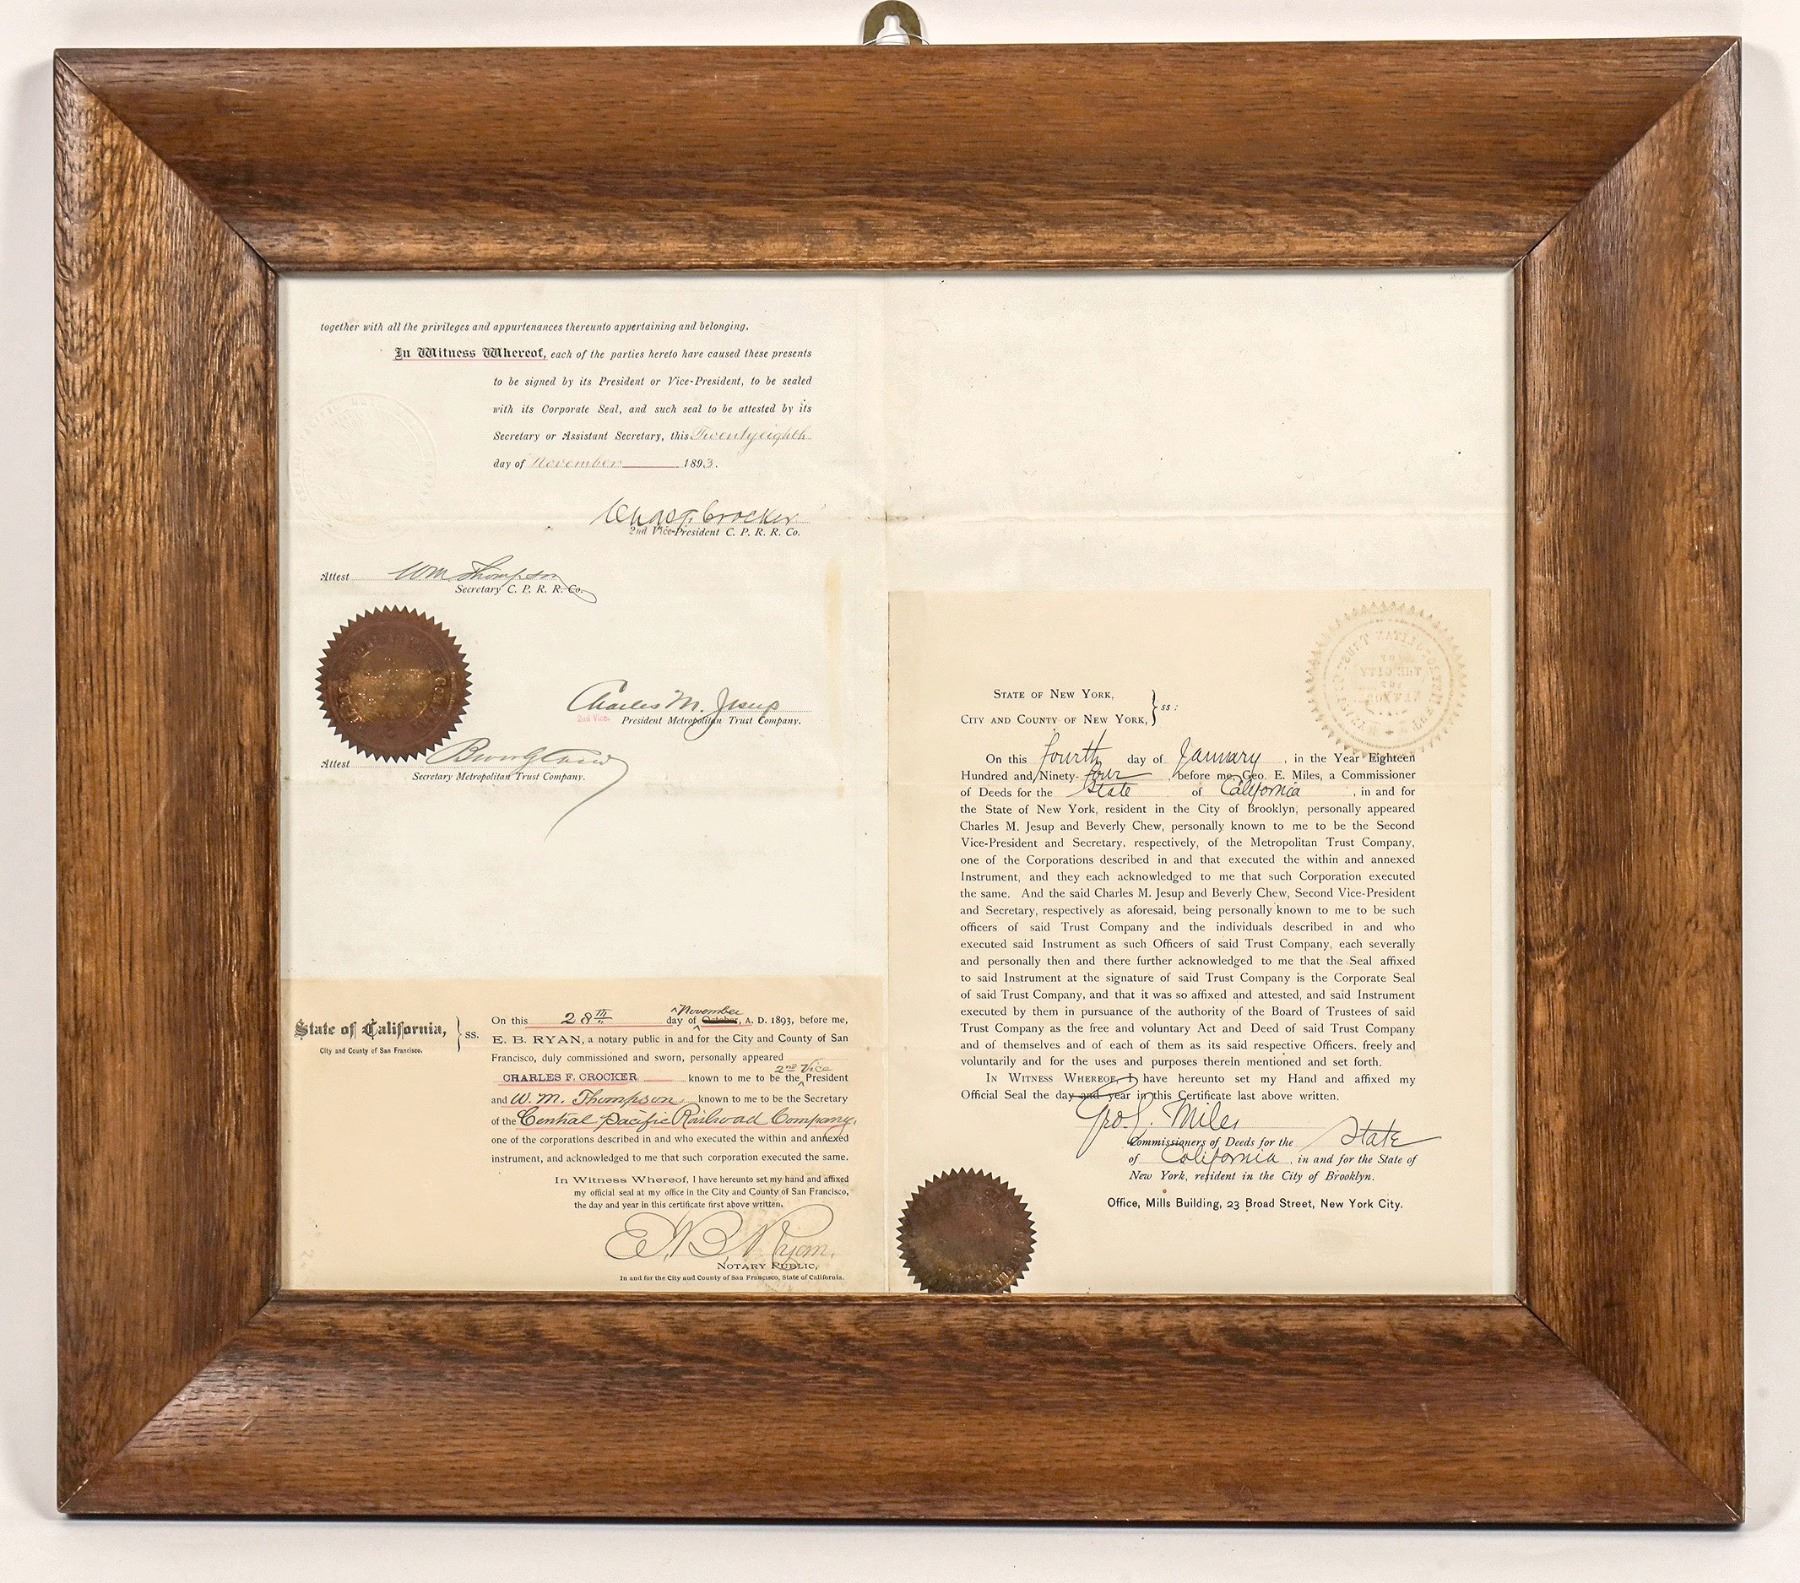 together with all the privileges and appurtenances thereunto appertaining and belonging.
In Witness Whereof, each of the parties hereto have caused these presents
to be signed by its President or Vice-President, to be sealed
with its Corporate Seal, and such seal to be attested by its
Secretary or Assistant Secretary, this Twentyeighth
day of November 1893.
Chas F. Crocker
2nd Vice-President C. P. R. R. Co.
Attest Wm Thompson
Secretary C. P. R. R. Co.
Charles M. Jesup
2nd Vice. President Metropolitan Trust Company.
Attest Beverly Chew
Secretary Metropolitan Trust Company.
State of California,
City and County of San Francisco.
} ss.
On this 28th day of ^November October, A. D. 1893, before me,
E. B. RYAN, a notary public in and for the City and County of San
Francisco, duly commissioned and sworn, personally appeared
CHARLES F. CROCKER known to me to be the ^2nd Vice President
and W. M. Thompson known to me to be the Secretary
of the Central Pacific Railroad Company,
one of the corporations described in and who executed the within and annexed
instrument, and acknowledged to me that such corporation executed the same.
In Witness Whereof, I have hereunto set my hand and affixed
my official seal at my office in the City and County of San Francisco,
the day and year in this certificate first above written.
E. B. Ryan.
NOTARY PUBLIC,
In and for the City and County of San Francisco, State of California.
State of New York,
City and County of New York, } ss:
On this fourth day of January, in the Year Eighteen
Hundred and Ninety-four, before me, Geo. E. Miles, a Commissioner
of Deeds for the State of California, in and for
the State of New York, resident in the City of Brooklyn, personally appeared
Charles M. Jesup and Beverly Chew, personally known to me to be the Second
Vice-President and Secretary, respectively, of the Metropolitan Trust Company,
one of the Corporations described in and that executed the within and annexed
Instrument, and they each acknowledged to me that such Corporation executed
the same. And the said Charles M. Jesup and Beverly Chew, Second Vice-President
and Secretary, respectively as aforesaid, being personally known to me to be such
officers of said Trust Company and the individuals described in and who
executed said Instrument as such Officers of said Trust Company, each severally
and personally then and there further acknowledged to me that the Seal affixed
to said Instrument at the signature of said Trust Company is the Corporate Seal
of said Trust Company, and that it was so affixed and attested, and said Instrument
executed by them in pursuance of the authority of the Board of Trustees of said
Trust Company as the free and voluntary Act and Deed of said Trust Company
and of themselves and of each of them as its said respective Officers, freely and
voluntarily and for the uses and purposes therein mentioned and set forth.
In Witness Whereof, I have hereunto set my Hand and affixed my
Official Seal the day and year in this Certificate last above written.
Geo. E. Miles
Commissioners of Deeds for the State
of California, in and for the State of
New York, resident in the City of Brooklyn.
Office, Mills Building, 23 Broad Street, New York City.